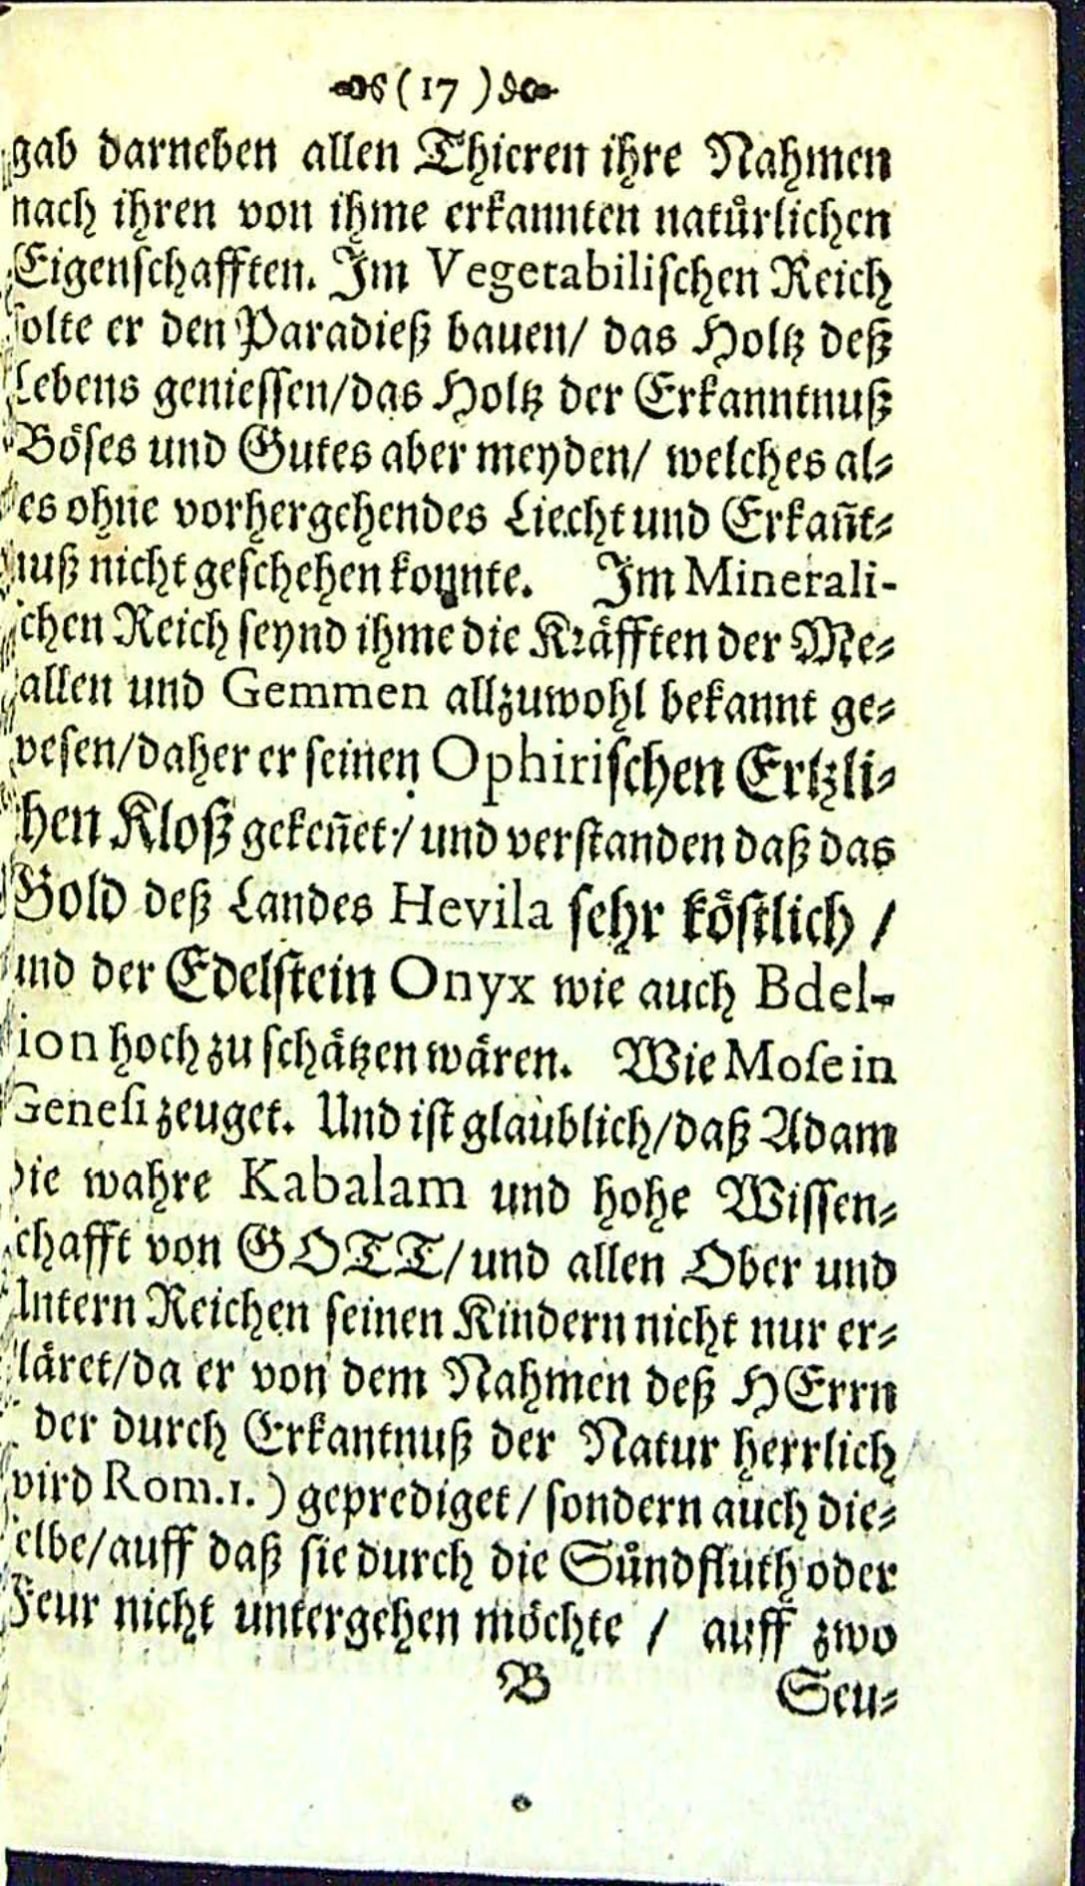 (17)
gab darneben allen Thieren ihre Nahmen
nach ihren von ihme erkannten natůrlichen
Eigenschafften. Im Vegetabilischen Reich
solte er den Paradieß bauen/ das Holtz deß
Lebens geniessen/das Holtz der Erkanntnuß
Böses und Gutes aber meyden/ welches al⸗
es ohne vorhergehendes Liecht und Erkañt⸗
nuß nicht geschehen konnte. Im Minerali-
chen Reich seynd ihme die Kräfften der Me⸗
allen und Gemmen allzuwohl bekannt ge⸗
wesen/daher er seinen Ophirischen Ertzli⸗
hen Kloß gekeñet/ und verstanden daß das
Gold deß Landes Hevila sehr köstlich /
und der Edelstein Onyx wie auch Bdel-
ion hoch zu schätzen wären. Wie Mose in
Genesi zeuget. Und ist glaublich/daß Adam
die wahre Kabalam und hohe Wissen⸗
chafft von GOTT/und allen Ober und
Untern Reichen seinen Kindern nicht nur er⸗
läret/da er von dem Nahmen deß HErrn
der durch Erkantnuß der Natur herrlich
wird Rom.1.) geprediget/ sondern auch die⸗
elbe/auff daß sie durch die Sůndfluth oder
Feur nicht untergehen möchte / auff zwo
B Seu⸗